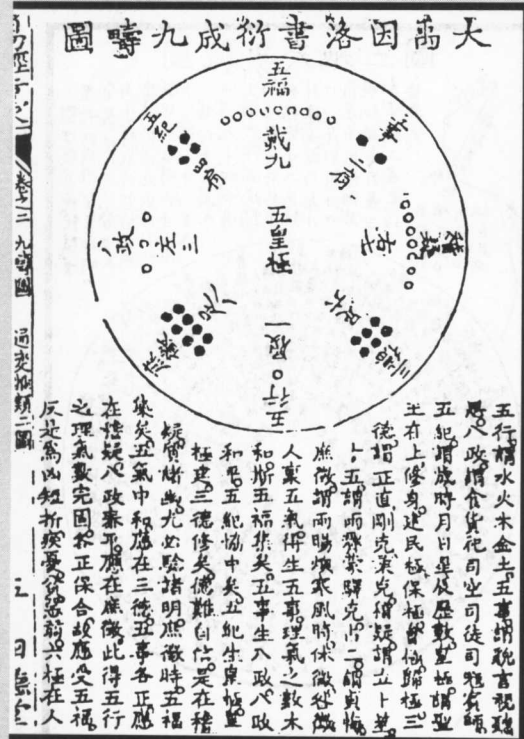 大禹因洛書衍成九疇圖
五福
戴九
五紀
四肩
二肩
八政
左三
五皇極
稽疑
庶徵
三德
一履
五行
五行謂水火木金土五事謂貌言視聽
思八政謂食貨祀司空司徒司寇賓師
五紀謂歲時月日星辰歷數皇極謂聖
王在上修身建民極保極會極歸極三
德謂正直剛克柔克稽疑謂立卜筮
卜五謂雨霽蒙驛克占二謂貞悔
庶徵謂雨暘燠寒風時休徵咎徵
人稟五氣得生五事理氣之數本
和斯五福集矣五事生八政八政
和平五紀協中矣五紀生皇極皇
極建三德修矣德難自信是在稽
疑質諸幽尤必驗諸明庶徵時五福
集矣五氣中和應在三德五事各正應
在稽疑八政泰平應在庶徵此得五行
之理氣數完固各正保合故應受五福
反是為凶短折疾憂貧惡弱六極在人
卷之二 九疇圖 通變類二圖